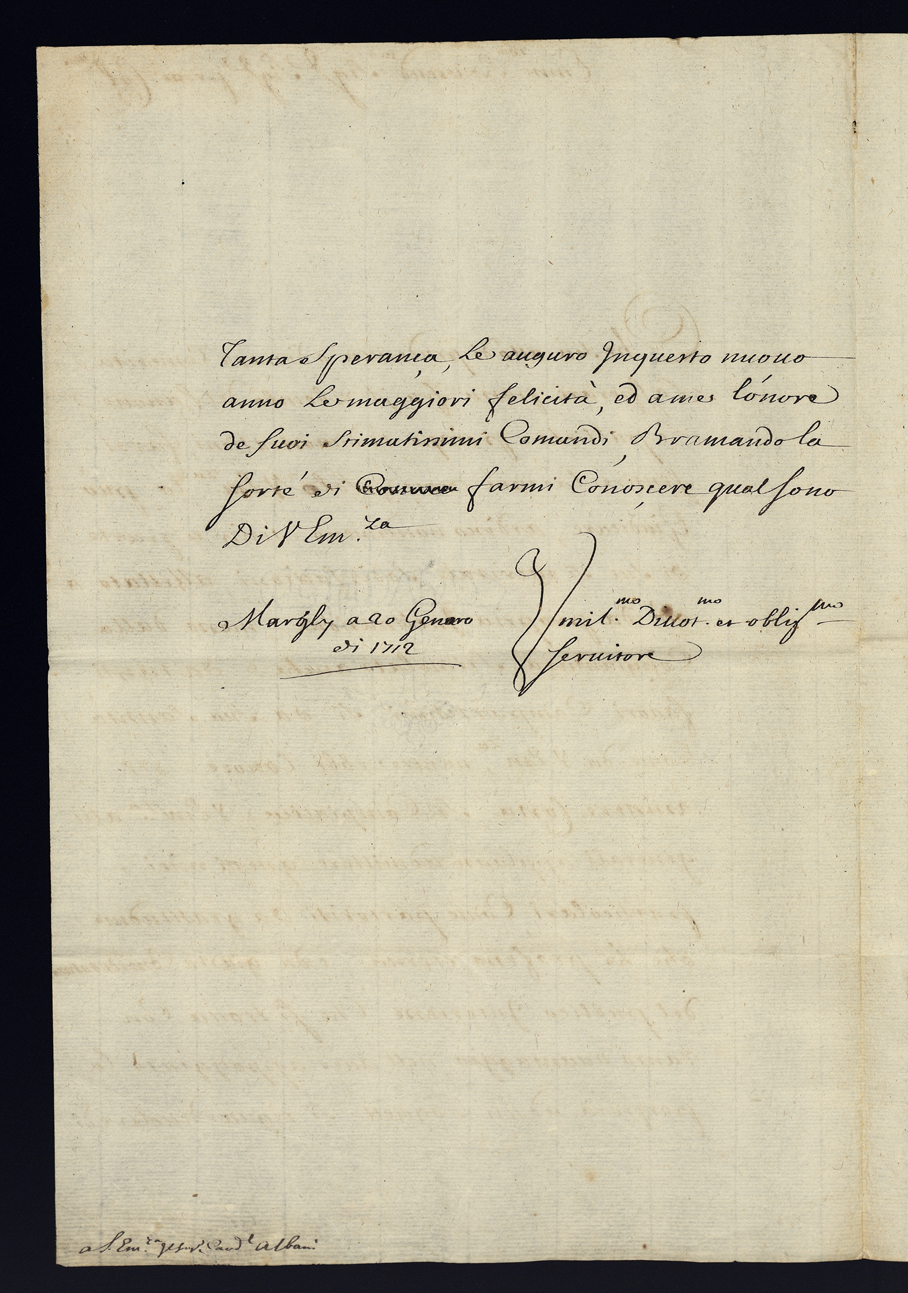 Tanta Speranza, Le auguro Inquesto nuouo
anno Le maggiori felicità, ed a me l'onore
de suoi stimatissimi Comandi, Bramando la
sorte di farmi Conoscere qual sono
Di V Em.za
Marsly a 20 Genaro
di 1712
Vmil.mo Diuot.mo et oblig.mo
seruitore
a S. Em.za Card.l Albani